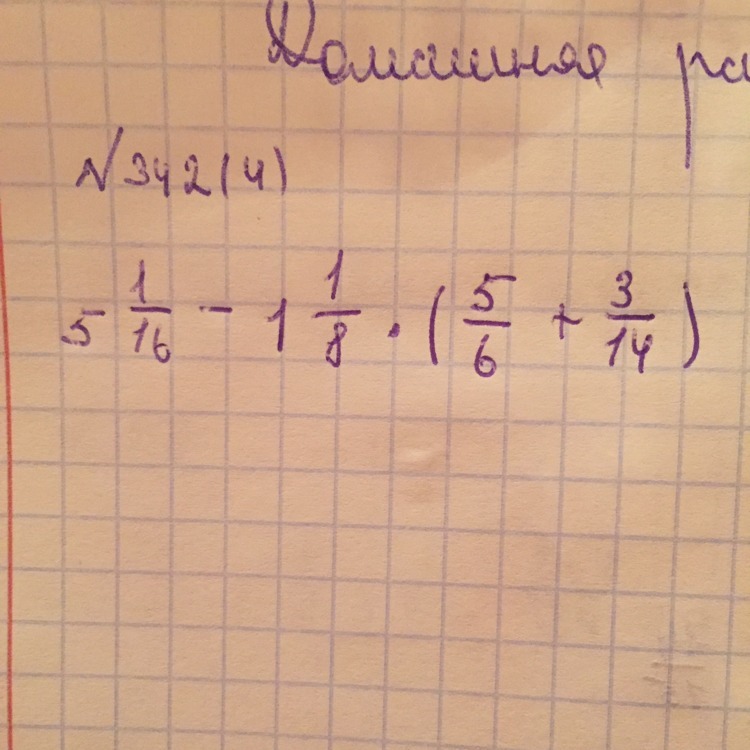 Домашняя
№342(4)
5 1/16 - 1 1/8 · (5/6 + 3/14)